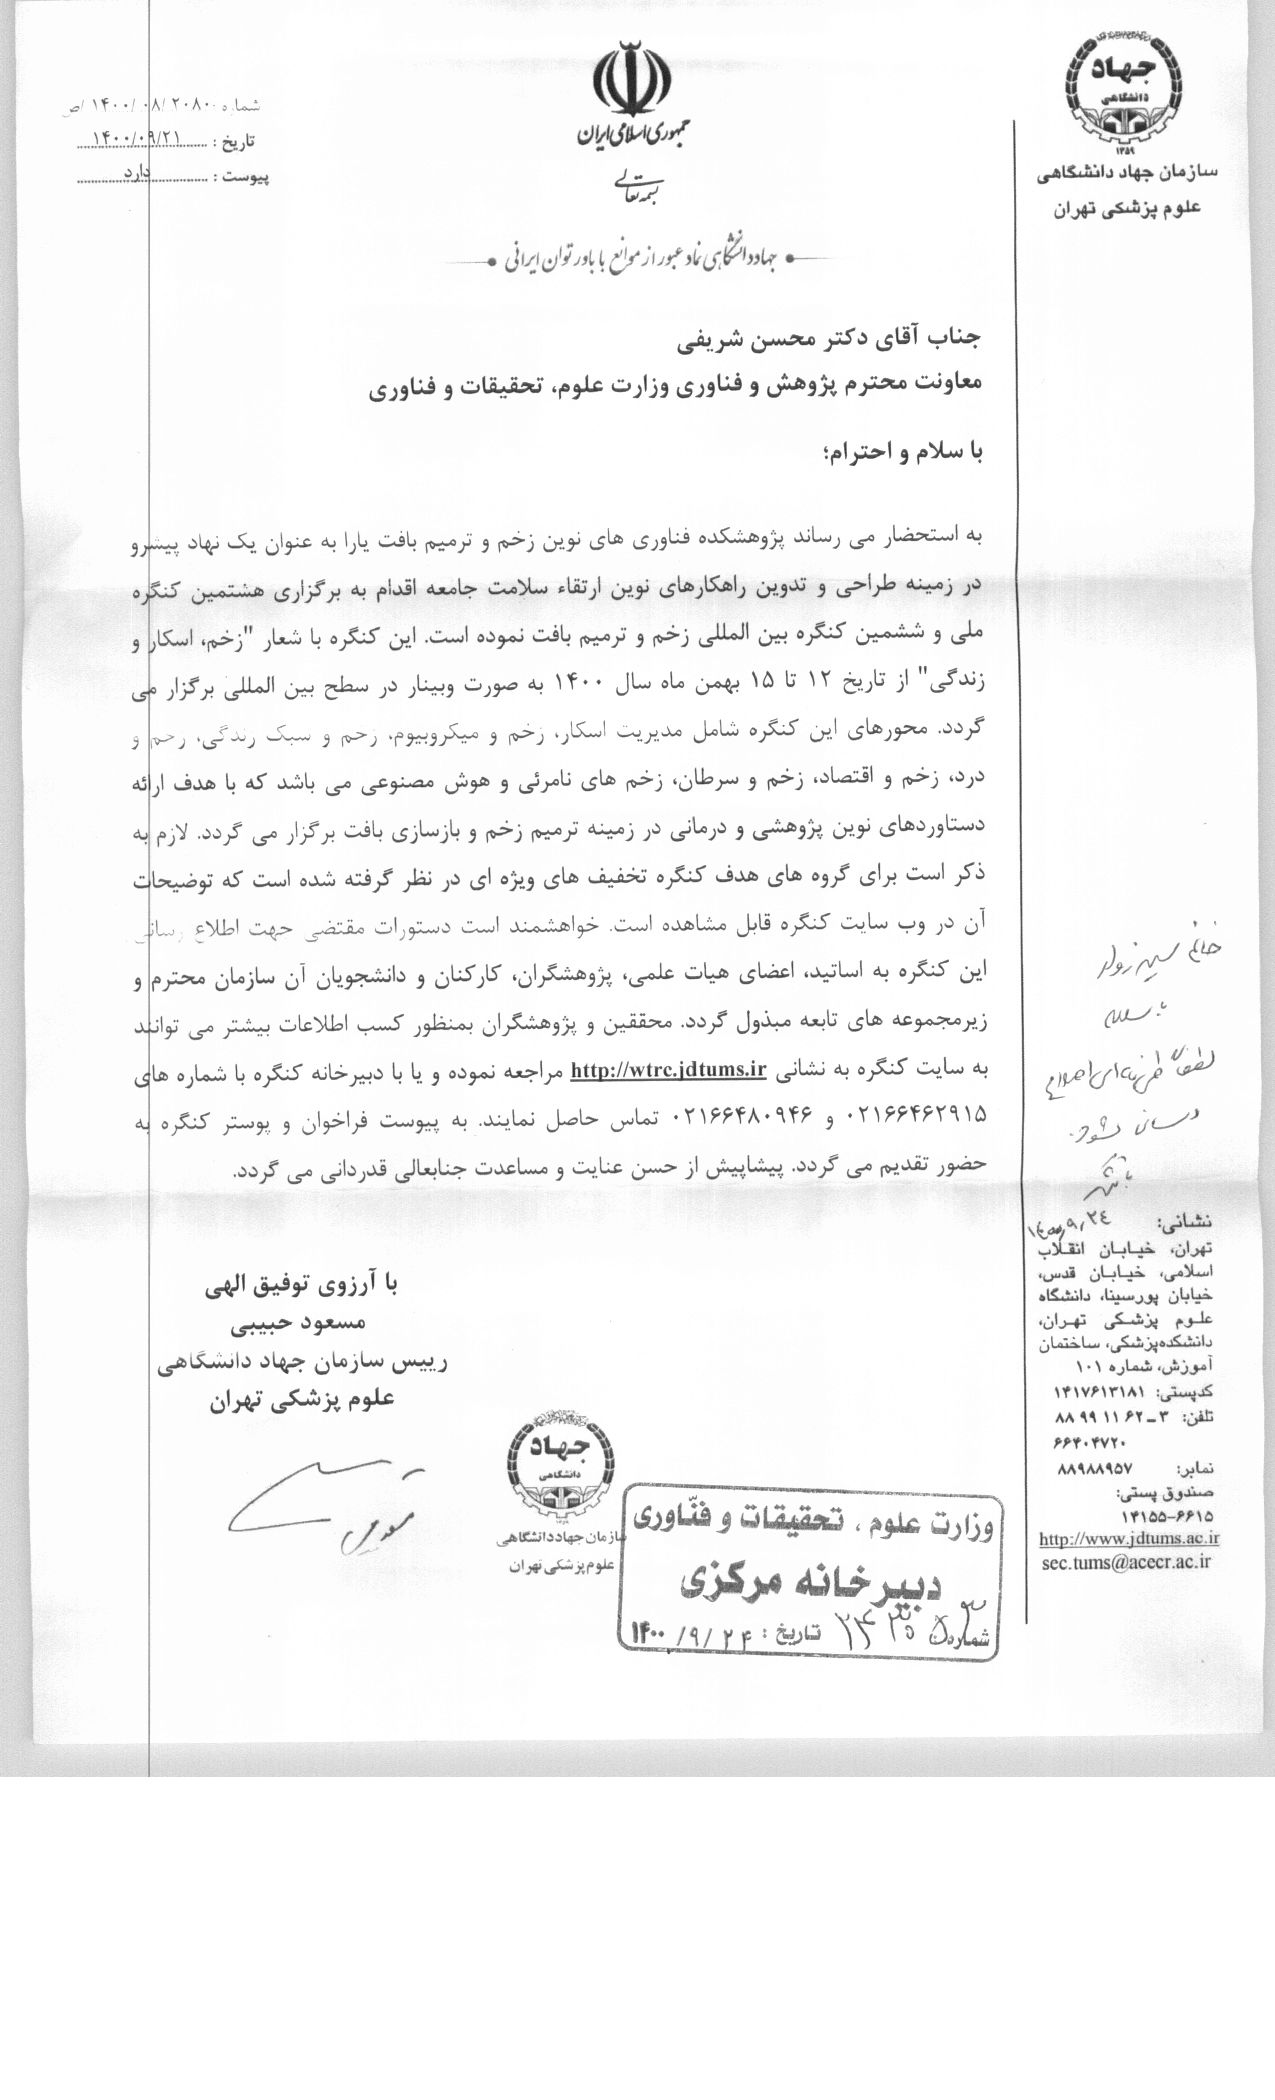 جهاد
دانشگاهی
۱۳۵۹
سازمان جهاد دانشگاهی
علوم پزشکی تهران
جمهوری اسلامی ایران
بسمه تعالی
جهاددانشگاهی نماد عبور از موانع با باور توان ایرانی
شماره ۱۴۰۰/۰۸/۲۰۸۰/ص
تاریخ : ۱۴۰۰/۰۹/۲۱
پیوست : دارد
جناب آقای دکتر محسن شریفی
معاونت محترم پژوهش و فناوری وزارت علوم، تحقیقات و فناوری
با سلام و احترام؛
به استحضار می رساند پژوهشکده فناوری های نوین زخم و ترمیم بافت یارا به عنوان یک نهاد پیشرو
در زمینه طراحی و تدوین راهکارهای نوین ارتقاء سلامت جامعه اقدام به برگزاری هشتمین کنگره
ملی و ششمین کنگره بین المللی زخم و ترمیم بافت نموده است. این کنگره با شعار "زخم، اسکار و
زندگی" از تاریخ ۱۲ تا ۱۵ بهمن ماه سال ۱۴۰۰ به صورت وبینار در سطح بین المللی برگزار می
گردد. محورهای این کنگره شامل مدیریت اسکار، زخم و میکروبیوم، زخم و سبک زندگی، زخم و
درد، زخم و اقتصاد، زخم و سرطان، زخم های نامرئی و هوش مصنوعی می باشد که با هدف ارائه
دستاوردهای نوین پژوهشی و درمانی در زمینه ترمیم زخم و بازسازی بافت برگزار می گردد. لازم به
ذکر است برای گروه های هدف کنگره تخفیف های ویژه ای در نظر گرفته شده است که توضیحات
آن در وب سایت کنگره قابل مشاهده است. خواهشمند است دستورات مقتضی جهت اطلاع رسانی
این کنگره به اساتید، اعضای هیات علمی، پژوهشگران، کارکنان و دانشجویان آن سازمان محترم و
زیرمجموعه های تابعه مبذول گردد. محققین و پژوهشگران بمنظور کسب اطلاعات بیشتر می توانند
به سایت کنگره به نشانی http://wtrc.jdtums.ir مراجعه نموده و یا با دبیرخانه کنگره با شماره های
۰۲۱۶۶۴۶۲۹۱۵ و ۰۲۱۶۶۴۸۰۹۴۶ تماس حاصل نمایند. به پیوست فراخوان و پوستر کنگره به
حضور تقدیم می گردد. پیشاپیش از حسن عنایت و مساعدت جنابعالی قدردانی می گردد.
با آرزوی توفیق الهی
مسعود حبیبی
رییس سازمان جهاد دانشگاهی
علوم پزشکی تهران
خانم
با سلام
لطفاً
رسانی شود.
با تشکر
۱۴۰۰/۹/۲۴
نشانی:
تهران، خیابان انقلاب
اسلامی، خیابان قدس،
خیابان پورسینا، دانشگاه
علوم پزشکی تهران،
دانشکده‌پزشکی، ساختمان
آموزش، شماره ۱۰۱
کدپستی: ۱۴۱۷۶۱۳۱۸۱
تلفن: ۳-۶۲ ۱۱ ۹۹ ۸۸
۶۶۴۰۴۷۲۰
نمابر: ۸۸۹۸۸۹۵۷
صندوق پستی:
۱۴۱۵۵-۶۶۱۵
http://www.jdtums.ac.ir
sec.tums@acecr.ac.ir
جهاد
دانشگاهی
سازمان جهاددانشگاهی
علوم پزشکی تهران
وزارت علوم ، تحقیقات و فنّاوری
دبیرخانه مرکزی
شماره تاریخ : ۱۴۰۰/۹/۲۴